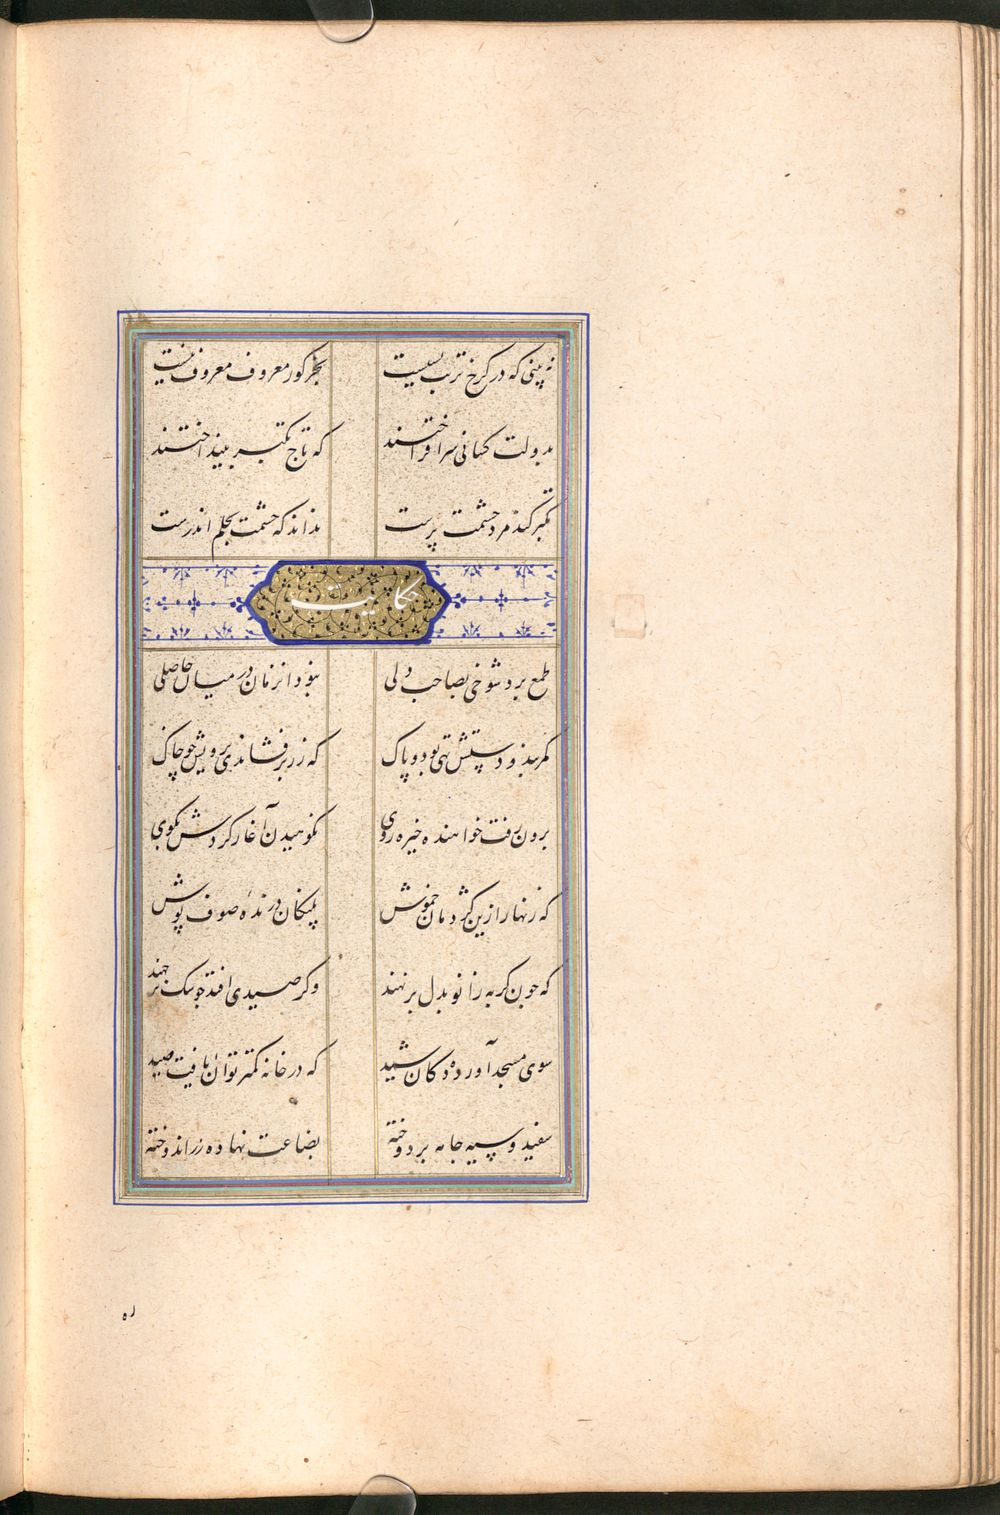 نه بینی که در کرخ تربت بسیست بجز کور معروف معروف نیست
بدولت کسانی سر افراختند که تاج تکبر بینداختند
تکبر کند مرد حشمت پرست نداند که حشمت بحلم اندرست
حکایت
طمع برد شوخی بصاحب دلی نبود انزمان در میان حاصلی
کمربند و دستش تهی بود و پاک که زر برفشاندی برویش چو خاک
برون رفت خواهنده خیره روی نکوهیدن آغاز کردش بکوی
که زنهار ازین کژدمان خموش پلنکان درنده صوف پوش
که چون کربه زانو بدل برنهند وکر صیدی افتد چو سک برجهند
سوی مسجد آورده دکان شید که در خانه کمتر توان یافت صید
سفید و سیه جامه بر دوخته بضاعت نهاده زر اندوخته